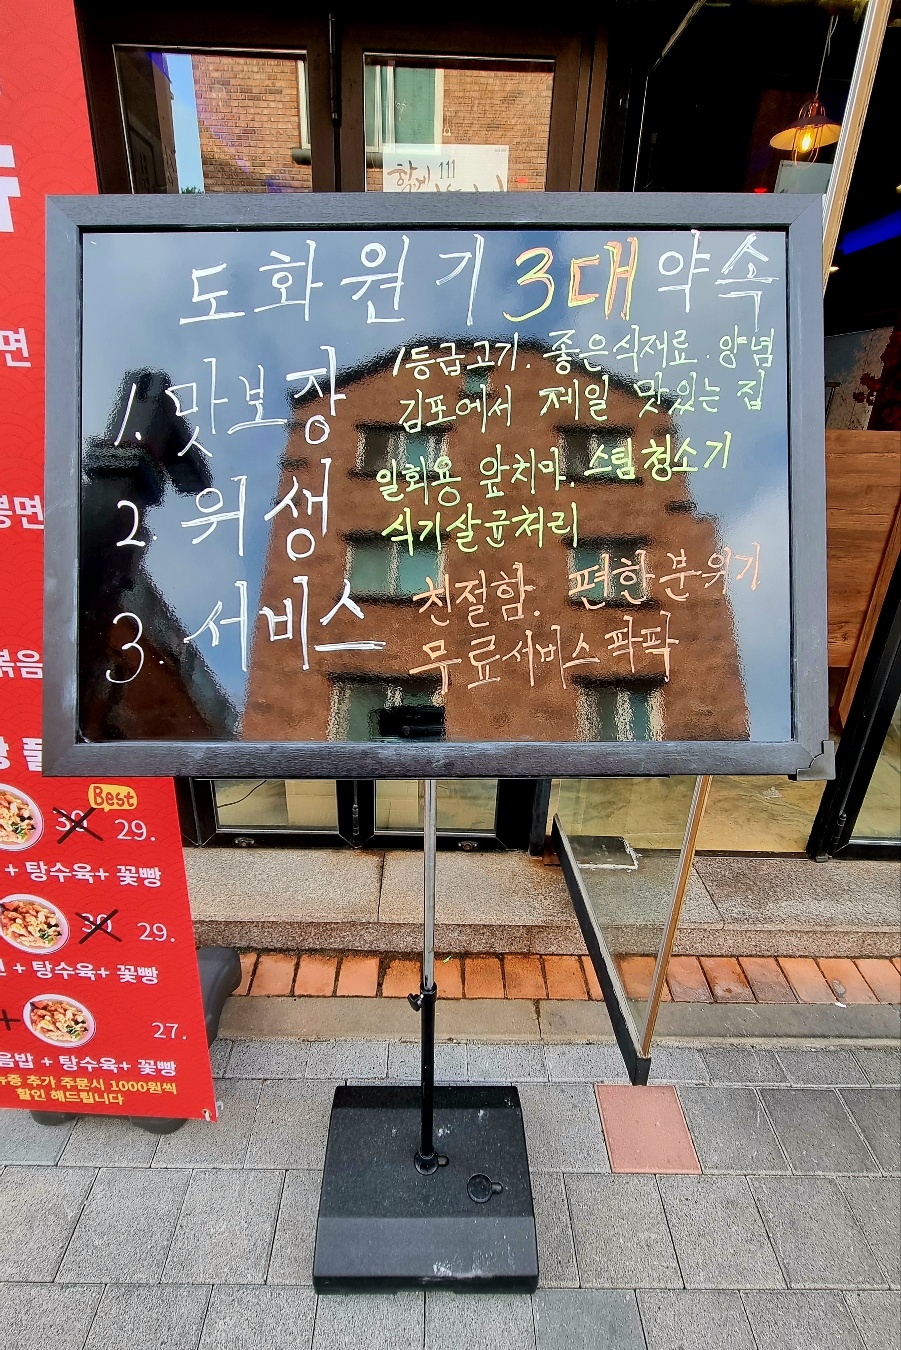 도화원기 3대 약속
1. 맛보장
1등급고기. 좋은식재료. 양념
김포에서 제일 맛있는 집
2. 위생
일회용 앞치마. 스팀청소기
식기살균처리
3. 서비스
친절함. 편한분위기
무료서비스팍팍
함께
면
면
볶음
Best
30 29.
+ 탕수육+ 꽃빵
30 29.
+ 탕수육+ 꽃빵
+ 27.
음밥 + 탕수육+ 꽃빵
추가 주문시 1000원씩
할인 해드립니다